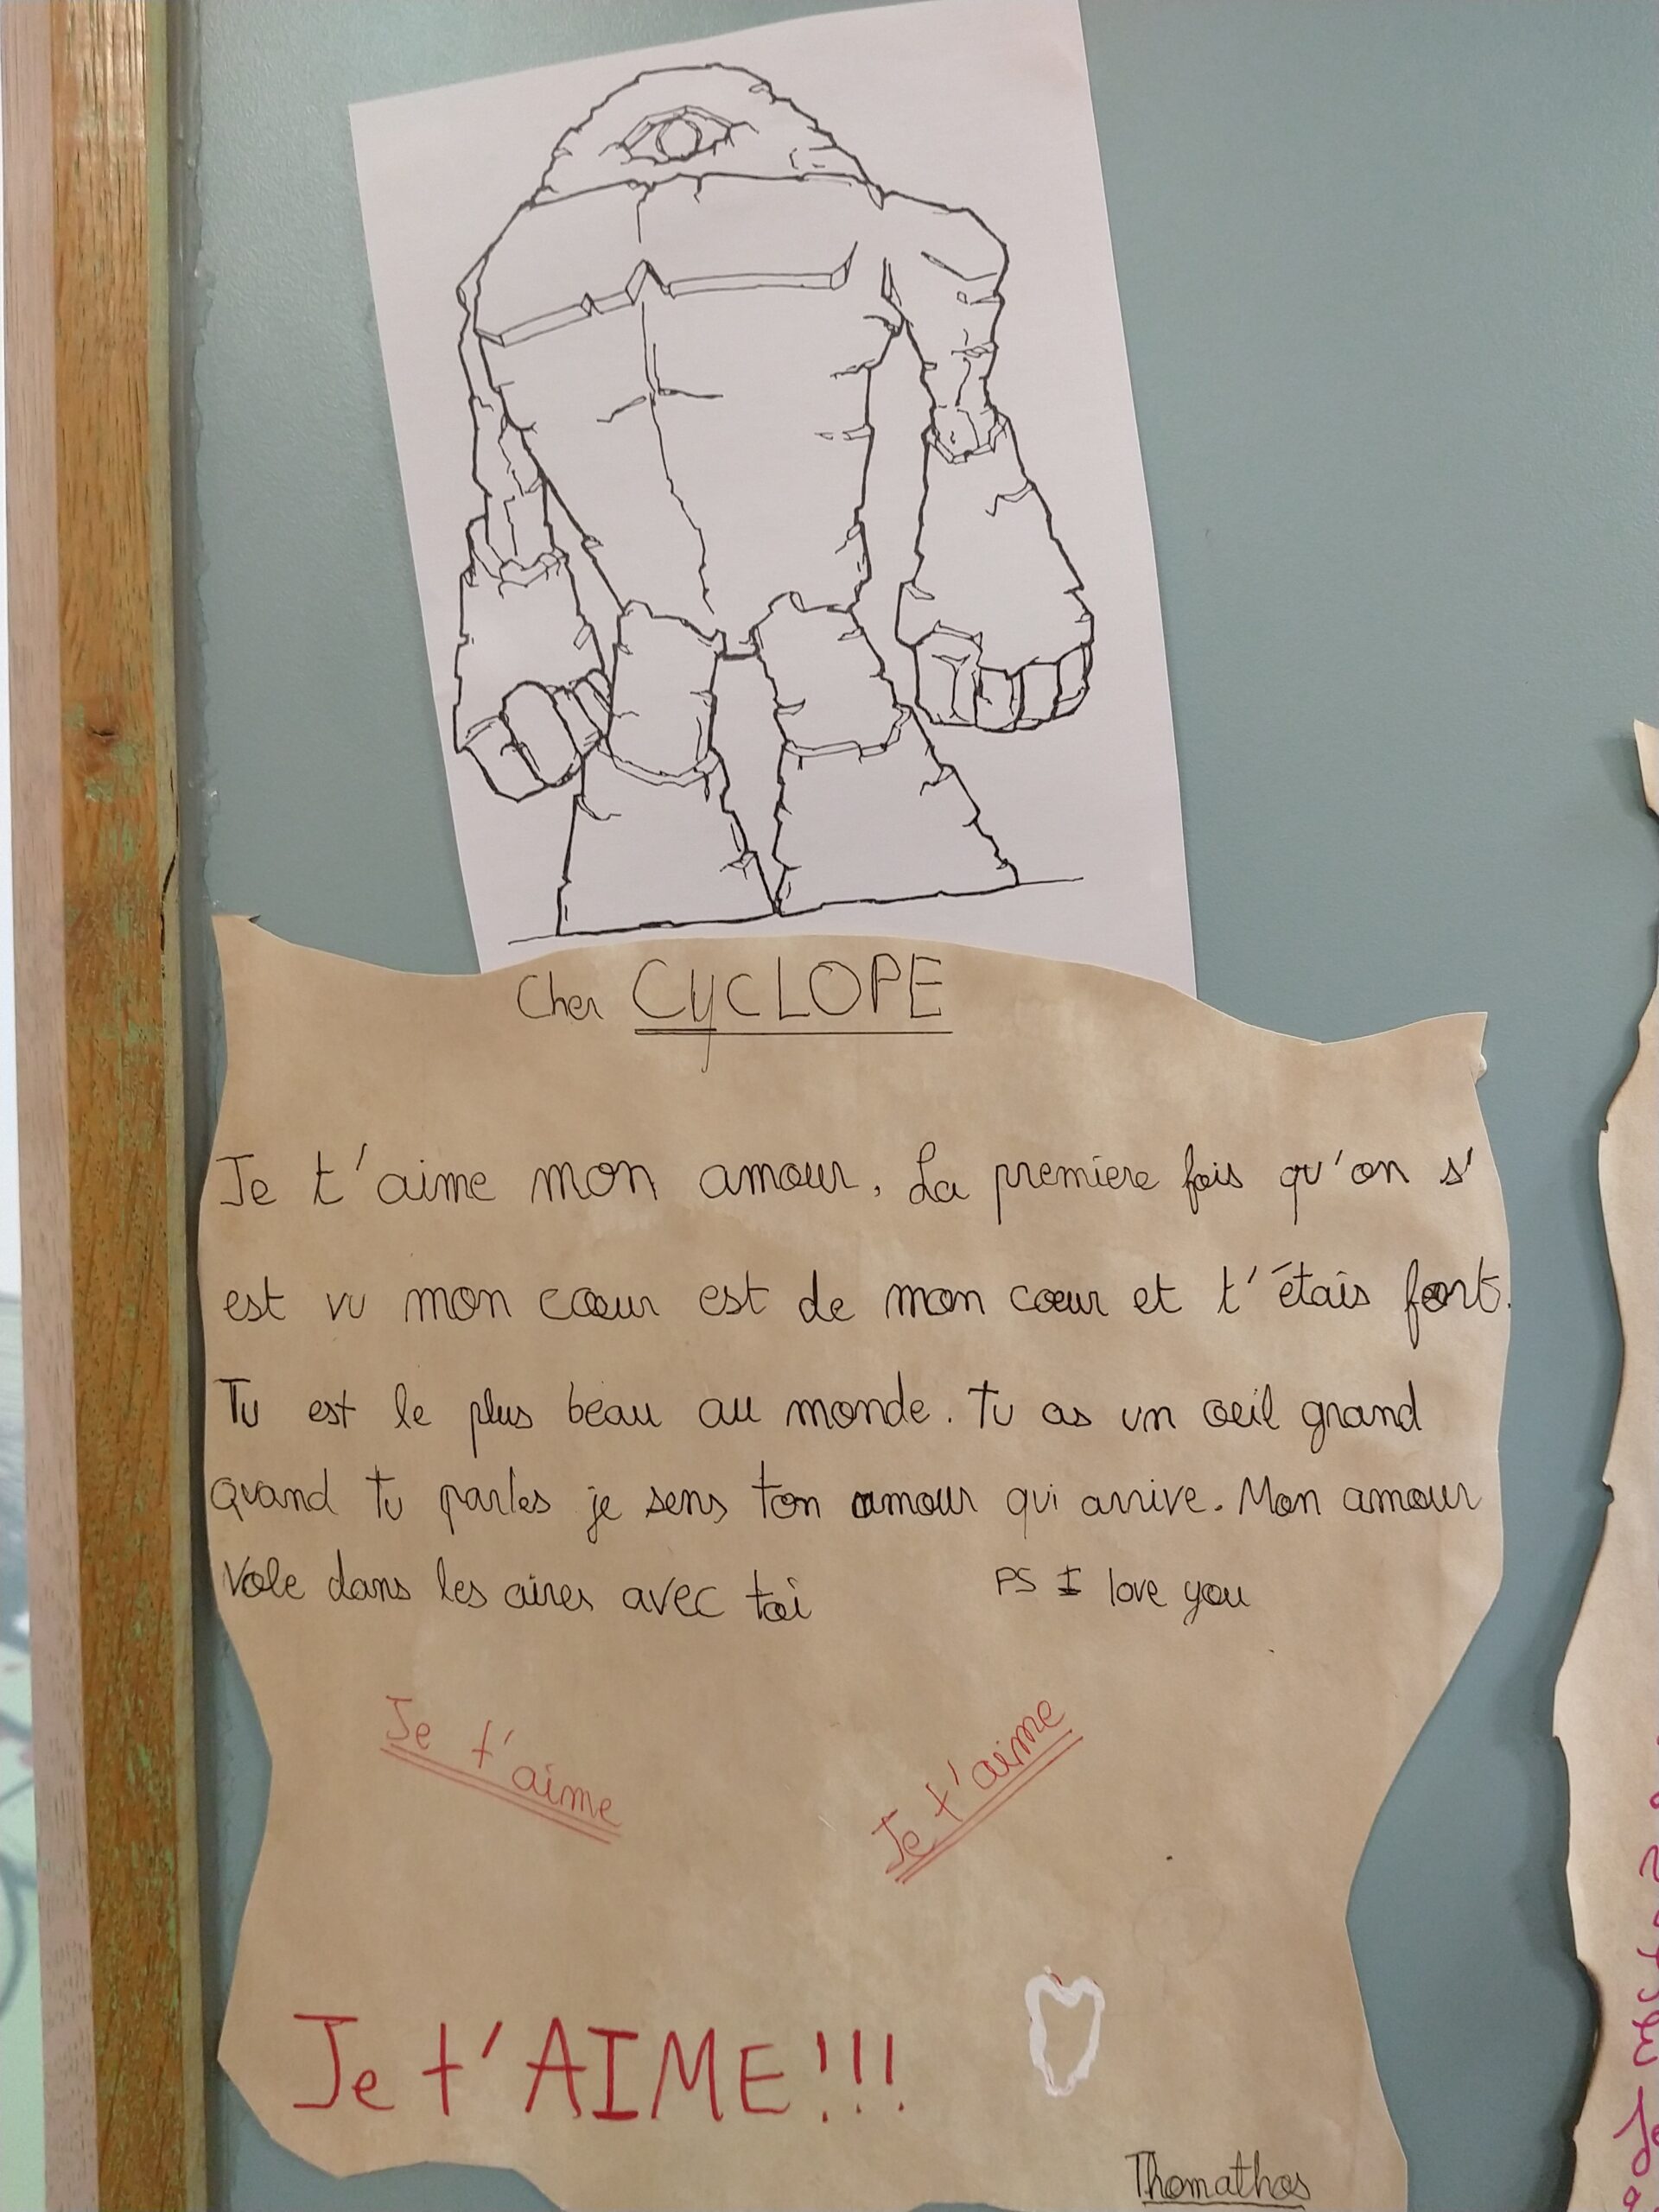 Cher CYCLOPE
Je t'aime mon amour. La premiere fois qu'on s'
est vu mon cœur est de mon cœur et t'étais font.
Tu est le plus beau au monde. Tu as un oeil grand
quand tu parles je sens ton amour qui arrive. Mon amour
Vole dans les aires avec toi PS I love you
Je t'aime
Je t'aime
Je t'AIME!!!
Thomathos